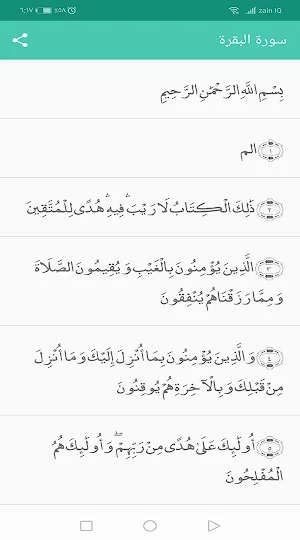 ٦:١٧ ٪٥٨ zain IQ
سورة البقرة
بِسْمِ اللَّهِ الرَّحْمَٰنِ الرَّحِيمِ
﴿١﴾ الم
﴿٢﴾ ذَٰلِكَ الْكِتَابُ لَا رَيْبَ ۛ فِيهِ ۛ هُدًى لِّلْمُتَّقِينَ
﴿٣﴾ الَّذِينَ يُؤْمِنُونَ بِالْغَيْبِ وَيُقِيمُونَ الصَّلَاةَ
وَمِمَّا رَزَقْنَاهُمْ يُنْفِقُونَ
﴿٤﴾ وَالَّذِينَ يُؤْمِنُونَ بِمَا أُنْزِلَ إِلَيْكَ وَمَا أُنْزِلَ
مِنْ قَبْلِكَ وَبِالْآخِرَةِ هُمْ يُوقِنُونَ
﴿٥﴾ أُولَٰئِكَ عَلَىٰ هُدًى مِنْ رَبِّهِمْ ۖ وَأُولَٰئِكَ هُمُ
الْمُفْلِحُونَ